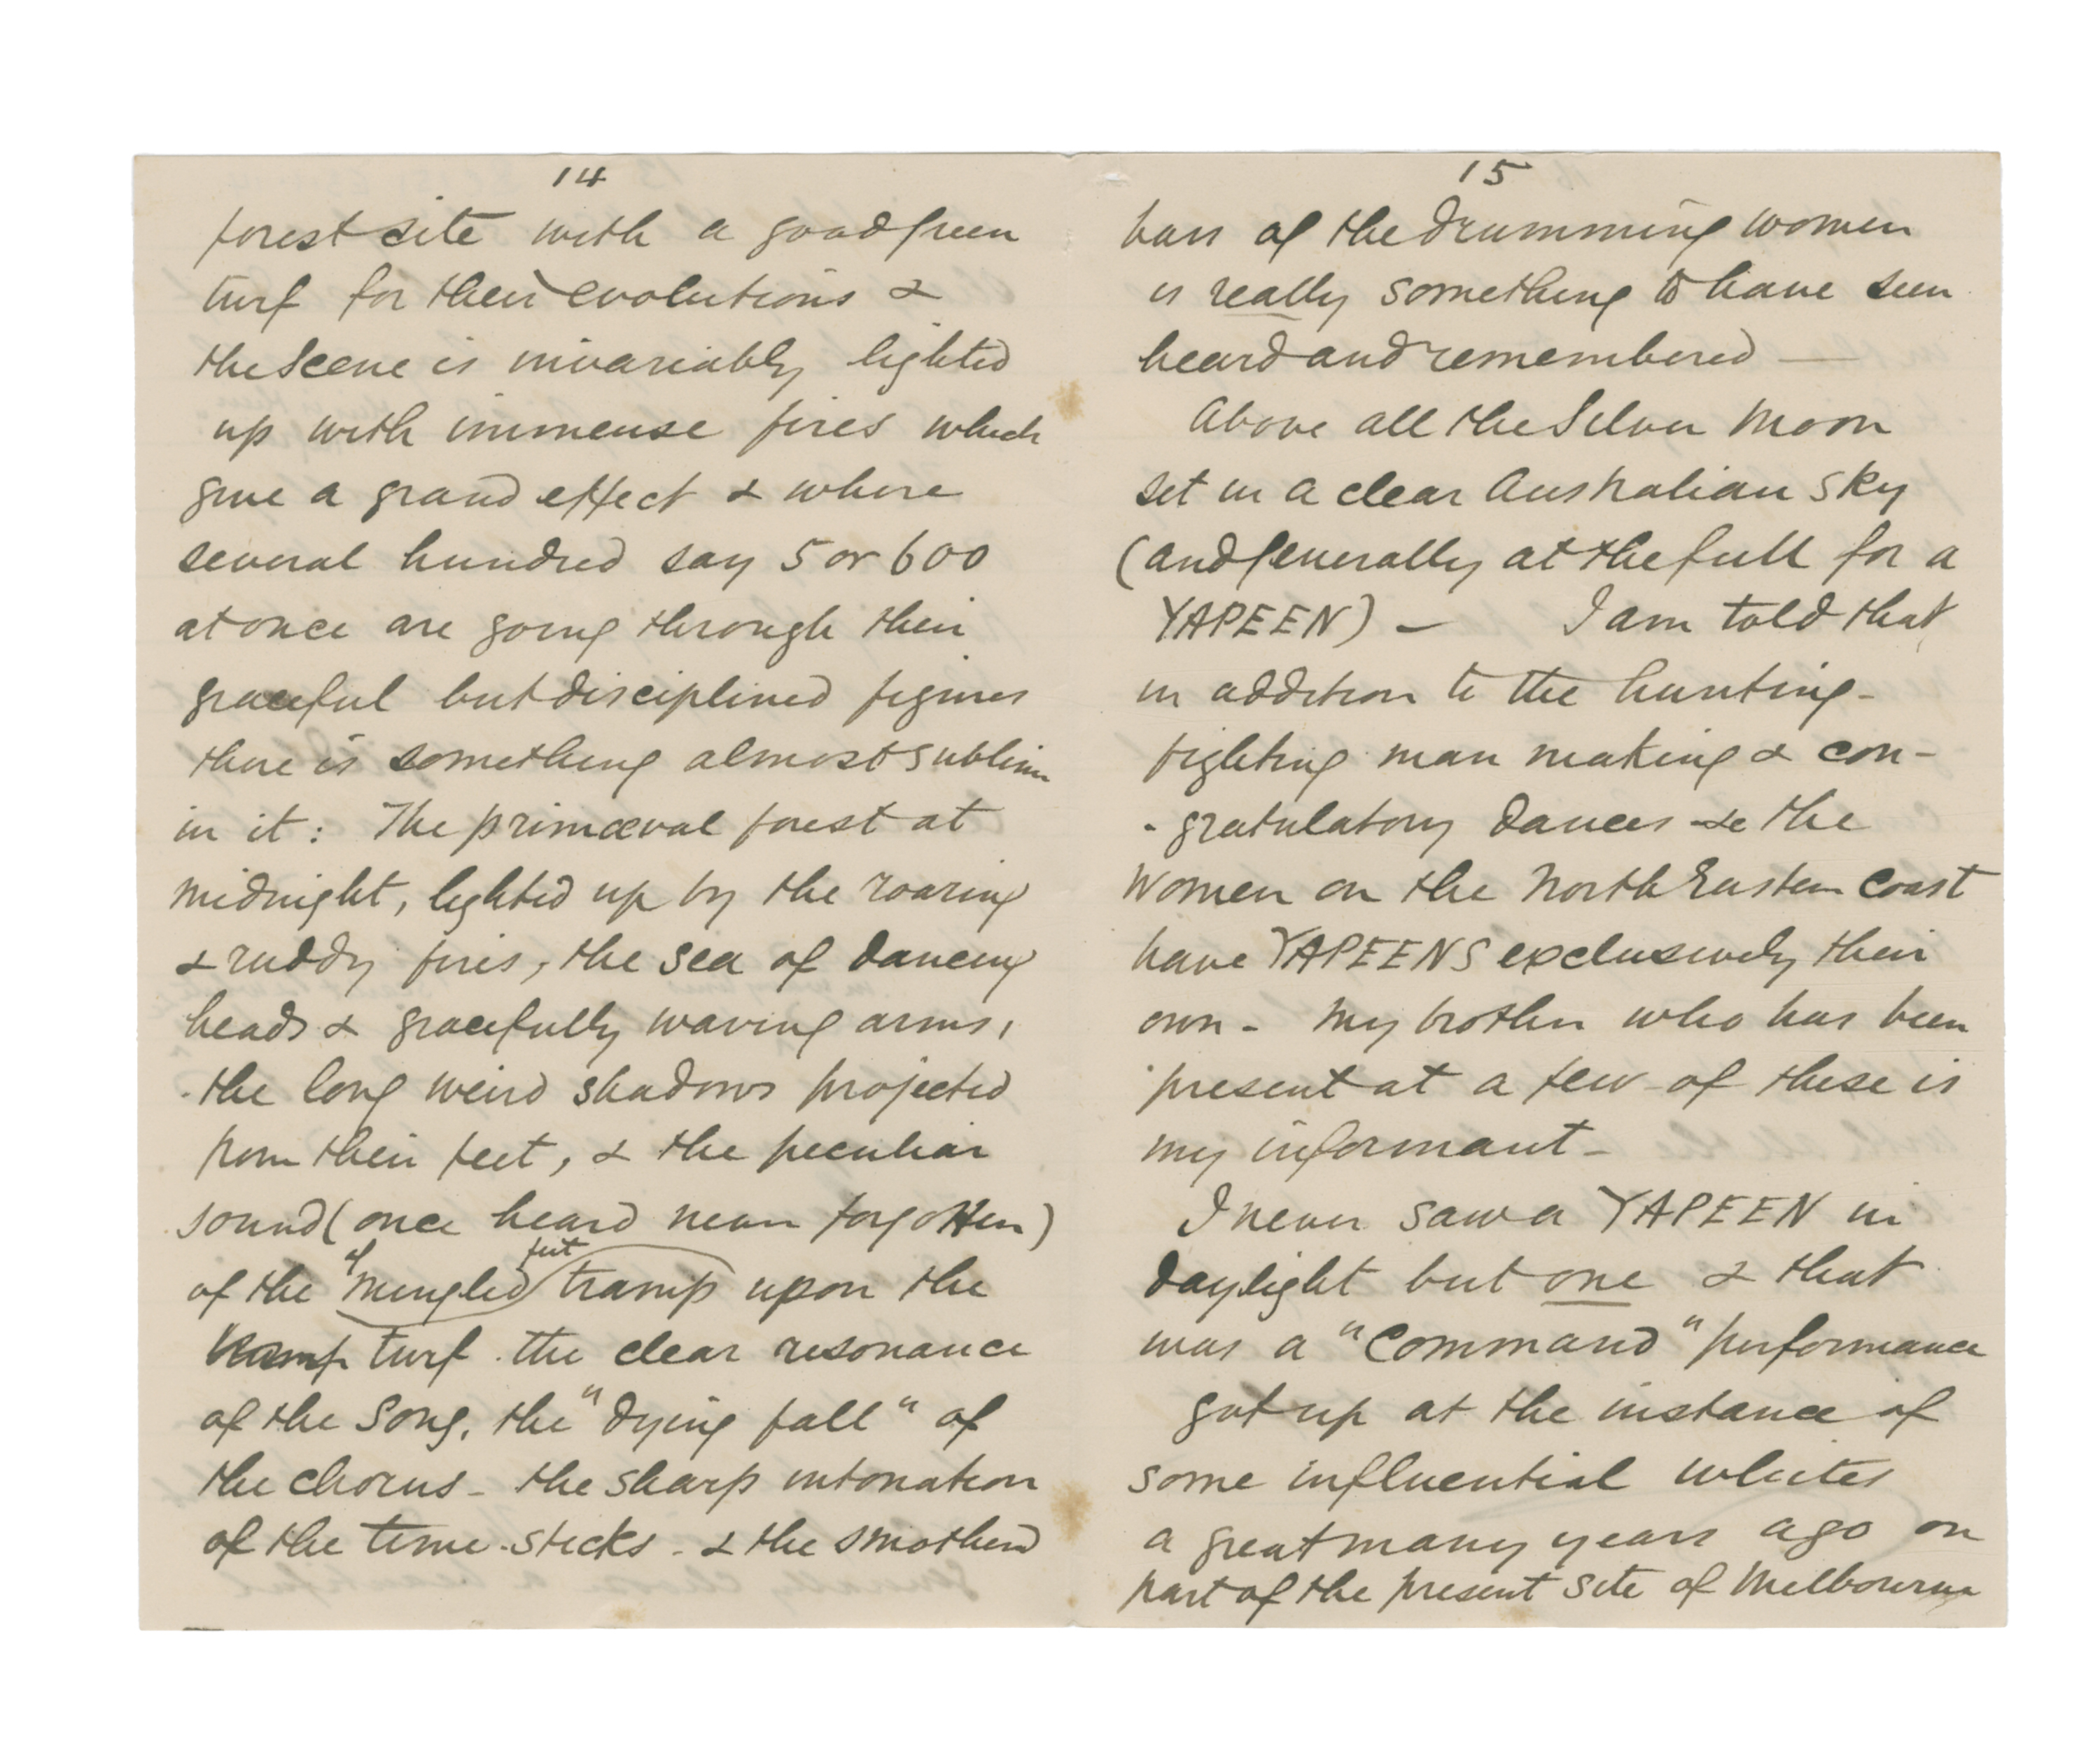 14
forest site with a good green
turf for their evolutions &
the scene is invariably lighted
up with immense fires which
give a grand effect & where
several hundred say 5 or 600
at once are going through their
graceful but disciplined figures
there is something almost sublime
in it: The primœval forest at
midnight, lighted up by the roaring
& ruddy fires, the sea of dancing
heads & gracefully waving arms,
the long weird shadows projected
from their feet, & the peculiar
sound (once heard never forgotten)
of feet
of the mingled tramp upon the
turf. the clear resonance
of the song, the "dying fall" of
the chorus - the sharp intonation
of the time-sticks - & the smothered
15
bass of the drumming women
is really something to have seen
heard and remembered —
Above all the Silver Moon
set in a clear Australian sky
(and generally at the full for a
YAPEEN) — I am told that
in addition to the hunting -
fighting man making & con-
-gratulatory dances &c the
Women on the North Eastern Coast
have YAPEENS exclusively their
own - My brother who has been
present at a few of these is
my informant -
I never saw a YAPEEN in
daylight but one & that
was a "Command" performance
got up at the instance of
some influential whites
a great many years ago on
part of the present site of Melbourne